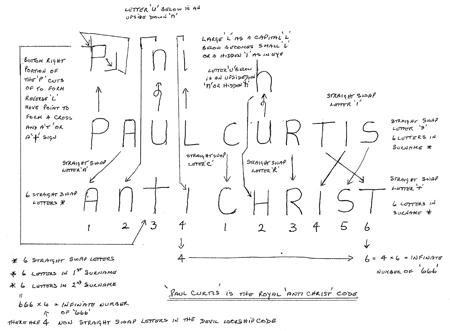 LETTER 'U' BELOW IS AN
UPSIDE DOWN 'N'
LARGE 'L' AS A CAPITAL 'L'
BELOW BECOMES SMALL 'L'
OR A HIDDEN 'I' AS IN EYE
LETTER 'U' BELOW
IS AN UPSIDE DOWN
'N' OR HIDDEN 'N'
n
BOTTOM RIGHT
PORTION OF
THE 'P' CUTS
OF TO FORM
REVERSE 'L'
MOVE POINT TO
FORM A CROSS
AND A 'T' OR
A '+' SIGN
STRAIGHT SWAP
LETTER 'I'
PAUL CURTIS
STRAIGHT SWAP
LETTER 'S'
6 LETTERS IN
SURNAME *
STRAIGHT SWAP
LETTER 'A'
STRAIGHT SWAP
LETTER 'C'
STRAIGHT SWAP
LETTER 'R'
STRAIGHT SWAP
LETTER 'T'
6 STRAIGHT SWAP
LETTERS *
ANTI CHRIST
6 LETTERS IN
SURNAME *
1 2 3 4 1 2 3 4 5 6
4 6 = 4 x 6 = INFINATE
NUMBER OF '666'
* 6 STRAIGHT SWAP LETTERS
* 6 LETTERS IN 1ST SURNAME
* 6 LETTERS IN 2ND SURNAME
=
666 x 4 = INFINATE NUMBER
OF '666'
'PAUL CURTIS' IS THE ROYAL 'ANTI CHRIST' CODE
THERE ARE 4 NON STRAIGHT SWAP LETTERS IN THE DEVIL WORSHIP CODE